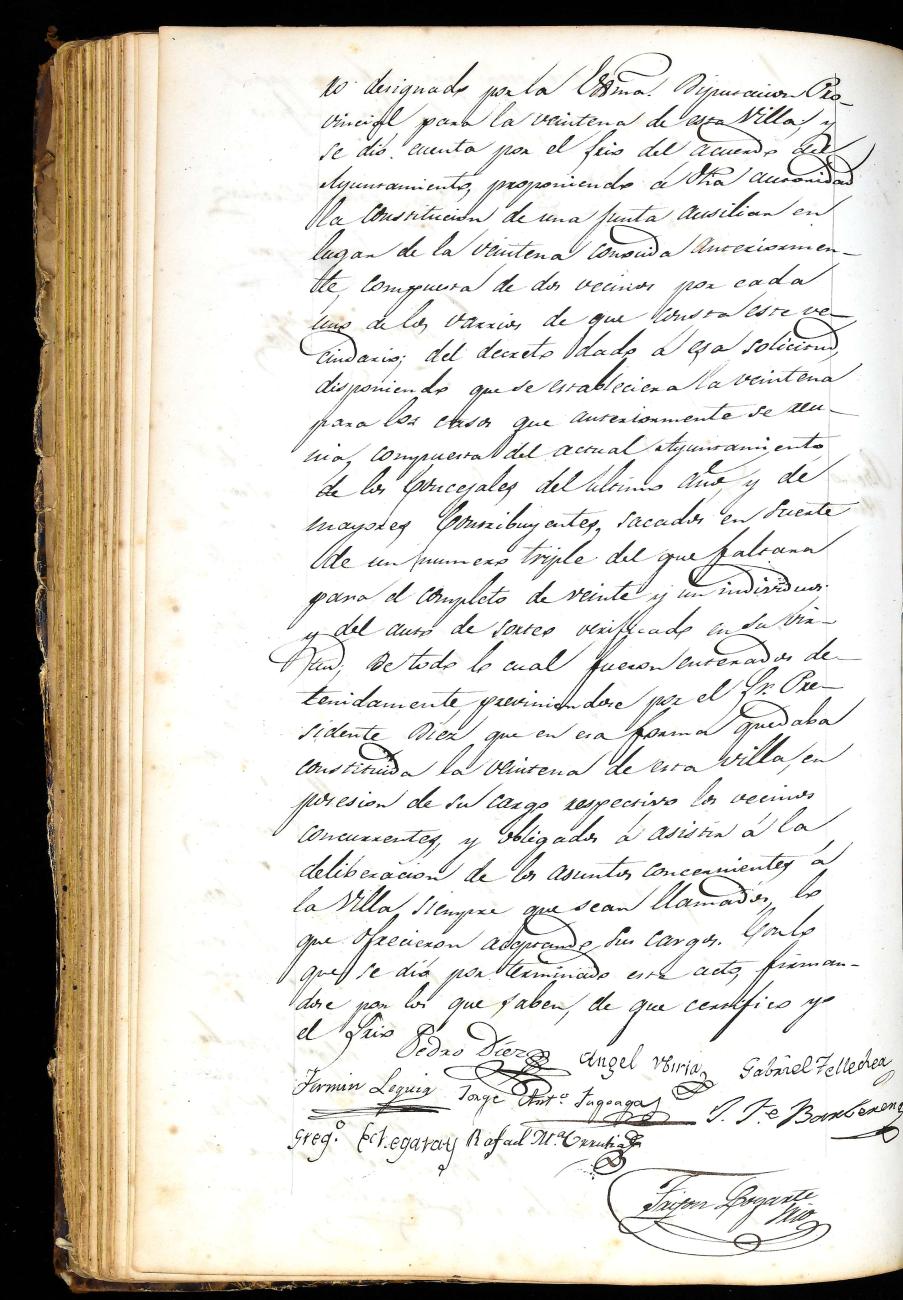 to designado por la Exma. Diputacion Pro-
vincial para la veintena de esta Villa, y
se dió cuenta por el Srio del acuerdo del
Ayuntamiento, proponiendo á dha autoridad
la Constitucion de una Junta ausiliar en
lugar de la veintena conocida anteriormen-
te compuesta de dos vecinos por cada
uno de los varrios de que consta este ve-
cindario; del decreto dado á esa solicitud
disponiendo que se estableciera la veintena
para los casos que anteriormente se reu-
nia, compuesta del actual Ayuntamiento
de los Concejales del ultimo año y de
mayores Contribuyentes, sacados en suerte
de un numero triple del que faltara
para el completo de veinte y un individuos
y del auto de sorteo verificado en su vir-
tud; De todo lo cual fueron enterados de-
tenidamente, previniendose por el Sr. Pre-
sidente Diez que en esa forma quedaba
constituida la veintena de esta villa, en
posesion de su cargo respectivo los vecinos
concurrentes, y obligados á asistir á la
deliberacion de los asuntos concernientes á
la Villa, siempre que sean llamados, lo
que ofrecieron aceptando sus cargos. Con lo
que se dió por terminado este acto, firman-
dose por los que saben, de que certifico yo
el Srio
Pedro Diez Angel Viria Gabriel Tellechea
Fermin Leguia Jorge Anto. Jugoaga J. Fe. Barberena
Grego. Echegaray Rafael Ma. Urrutia
Srio